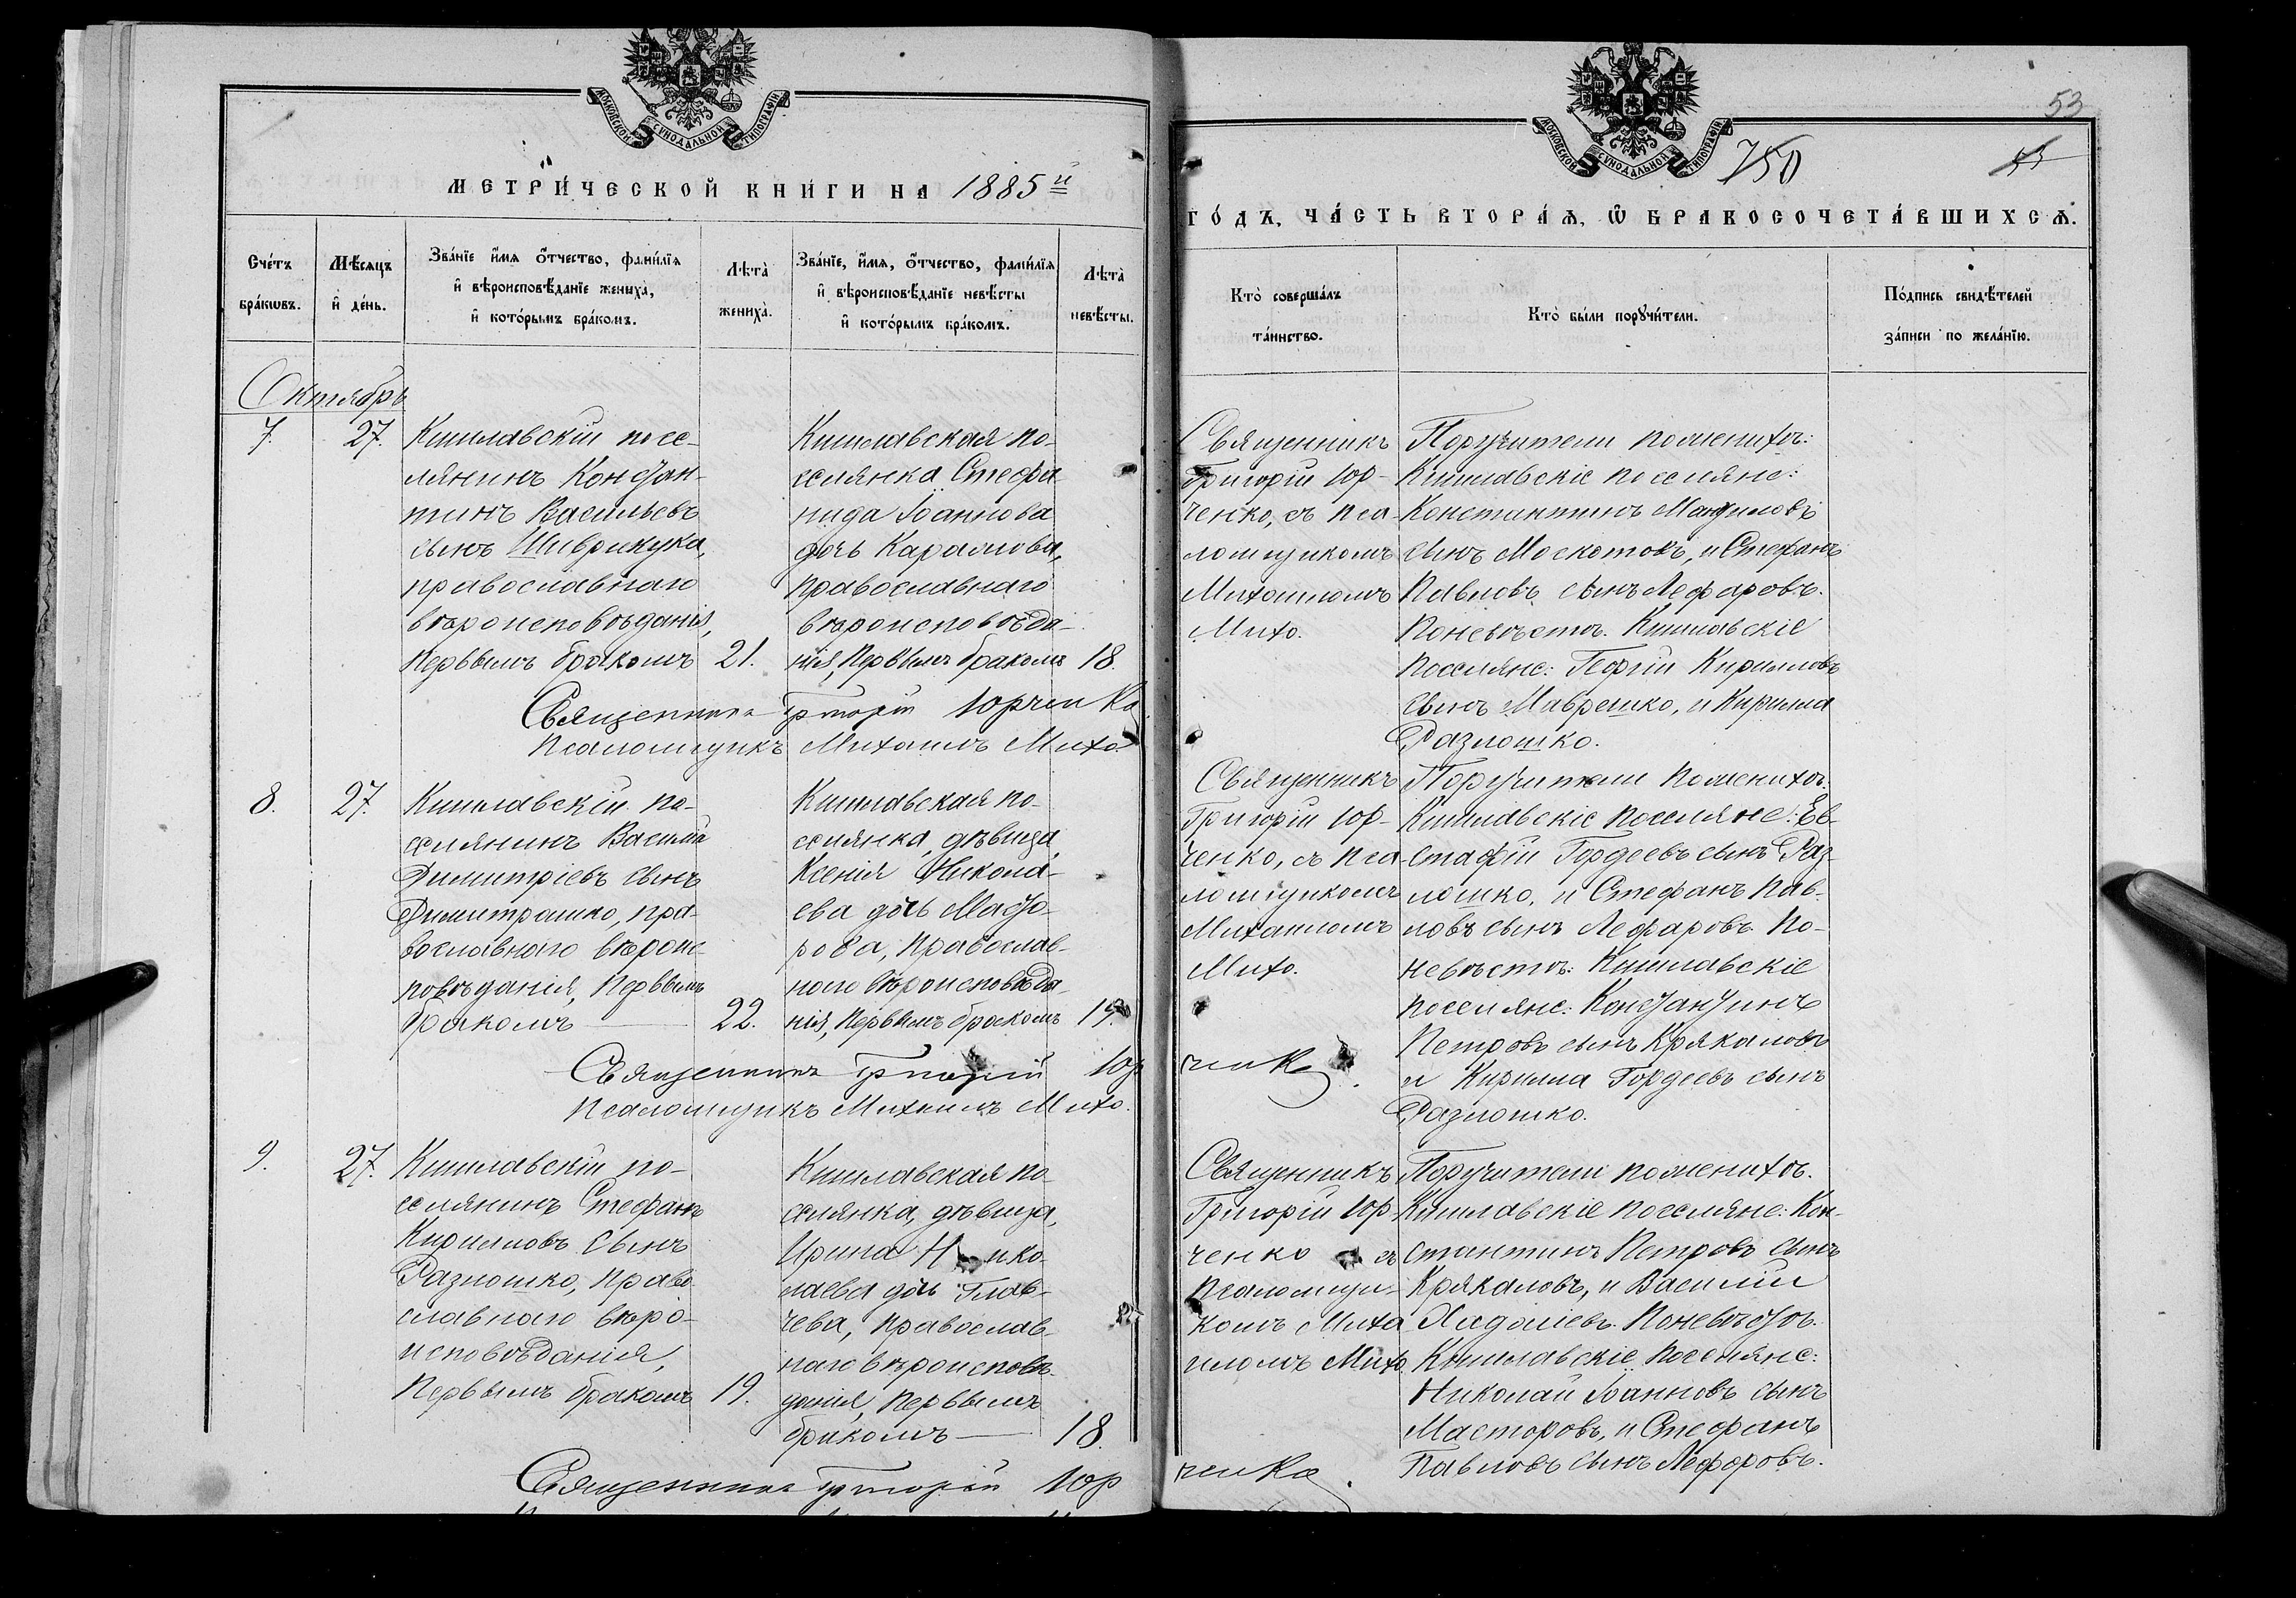 МОСКОВСКОЙ СѴНОДАЛЬНОЙ ТИПОГРАФІИ
МЕТРИ́ЧЕСКОЙ КНИ́ГИ НА 1885 й
Сче́тъ бра́кωвъ.
Мѣ́сяцъ и҆ де́нь.
Зва́нїе и҆́мѧ ѻ҆́тчество, фамѝлїѧ
и҆ вѣроисповѣ́данїе жениха̀,
и҆ кото́рымъ бра́комъ.
Лѣта̀
жениха̀.
Зва́нїе, и҆́мѧ, ѻ҆́тчество, фамѝлїѧ
и҆ вѣроисповѣ́данїе невѣ́сты
и҆ кото́рымъ бра́комъ.
Лѣта̀
невѣ́сты.
Октябрь
7.
27.
Кишлавскій посе-
лянинъ Констан-
тинъ Васильевъ
сынъ Шиврикука,
православнаго
вѣроисповѣданія,
первымъ бракомъ
21.
Кишлавская по-
селянка Стефа-
нида Іоаннова
дочь Карамова,
православнаго
вѣроисповѣда-
нія, первымъ бракомъ
18.
Священникъ Григорій Юрченко
Псаломщикъ Михаилъ Михо.
8.
27.
Кишлавскій по-
селянинъ Василій
Димитріевъ сынъ
Димитрашко, пра-
вославнаго вѣроис-
повѣданія, первымъ
бракомъ
22.
Кишлавская по-
селянка, дѣвица
Ксенія Никола-
ева дочь Масто-
рова, православ-
наго вѣроисповѣда-
нія, первымъ бракомъ
19.
Священникъ Григорій Юр
Псаломщикъ Михаилъ Михо.
9.
27.
Кишлавскій по-
селянинъ Стефанъ
Кирилловъ сынъ
Разлошко, право-
славнаго вѣро-
исповѣданія,
первымъ бракомъ
19.
Кишлавская по-
селянка, дѣвица,
Ирина Нико-
лаева дочьГлав-
чева, православ-
наго вѣроисповѣ-
данія, первымъ
бракомъ
18.
Священникъ Григорій Юр
МОСКОВСКОЙ СѴНОДАЛЬНОЙ ТИПОГРАФІИ
53
750
ГО́ДЪ, ЧА́СТЬ ВТОРА́Ѧ, Ѽ БРАКОСОЧЕТА́ВШИХСѦ.
Кто̀ соверша́лъ
та́инство.
Кто̀ бы́ли порꙋчи́тели.
По́дпись свидѣ́телей
за́писи по жела́нїю.
Священникъ
Григорій Юр-
ченко, съ пса-
ломщикомъ
Михаиломъ
Михо.
Поручители по женихѣ:
Кишлавскіе поселяне:
Константинъ Мануиловъ
сынъ Москотовъ, и Стефанъ
Павловъ сынъ Лефаровъ.
По невѣстѣ. Кишлавскіе
поселяне: Георгій Кирилловъ
сынъ Маврешко, и Кирилла
Разлошко.
Священникъ
Григорій Юр-
ченко, съ пса-
ломщикомъ
Михаиломъ
Михо.
ченко.
Поручители по женихѣ:
Кишлавскіе поселяне: Ев-
стафій Гордеевъ сынъ Раз-
лошко, и Стефанъ Пав-
ловъ сынъ Лефаровъ. По
невѣстѣ: Кишлавскіе
поселяне: Константинъ
Петровъ сынъ Крякаловъ
и Кирилла Гордеевъ сынъ
Разлошко.
Священникъ
Григорій Юр-
ченко съ
псаломщи-
комъ Миха-
иломъ Михо
ченко.
Поручители по женихѣ.
Кишлавскіе поселяне: Кон-
стантинъ Петровъ сынъ
Крякаловъ, и Василій
По невѣстѣ.
Кишлавскіе поселяне:
Николай Іоанновъ сынъ
Масторовъ, и Стефанъ
Павловъ сынъ Лефоровъ.